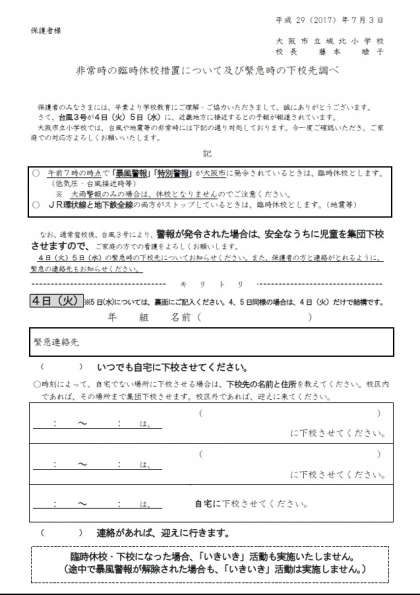 平成 29（2017）年7月3日
保護者様
大阪市立城北小学校
校長　藤本　睦子
非常時の臨時休校措置について及び緊急時の下校先調べ
保護者のみなさまには、平素より学校教育にご理解・ご協力いただきまして、誠にありがとうございます。
さて、台風3号が4日（火）5日（水）に、近畿地方に接近するとの予報が報道されています。
大阪市立小学校では、台風や地震等の非常時には下記の通り対処しております。今一度ご確認いただき、ご家
庭での対応方よろしくお願いします。
記
○　午前7時の時点で「暴風警報」「特別警報」が大阪市に発令されているときは、臨時休校とします。
（低気圧・台風接近時等）
※　大雨警報のみの場合は、休校となりませんのでご注意ください。
○　JR環状線と地下鉄全線の両方がストップしているときは、臨時休校とします。（地震等）
なお、通常登校後、台風3号により、警報が発令された場合は、安全なうちに児童を集団下校
させますので、ご家庭での方での看護をよろしくお願いします。
4日（火）5日（水）の緊急時の下校先についてお知らせください。また、保護者の方と連絡がとれるように、
緊急の連絡先もお知らせください。
キ　リ　ト　リ
4日（火）※5日(水)については、裏面にご記入ください。4、5日同様の場合は、4日（火）だけで結構です。
年　　組　　名前（　　　　　　　　　）
緊急連絡先
（　　　）　いつでも自宅に下校させてください。
○時刻によって、自宅でない場所に下校させる場合は、下校先の名前と住所を教えてください。校区内
であれば、その場所まで集団下校させます。校区外であれば、迎えに来てください。
（　　　　　　　　　　　　　）
：　～　：　は、
に下校させてください。
（　　　　　　　　　　　　　）
：　～　：　は、
に下校させてください。
：　～　：　は、　自宅に下校させてください。
（　　　）　連絡があれば、迎えに行きます。
臨時休校・下校になった場合、「いきいき」活動も実施いたしません。
（途中で暴風警報が解除された場合も、「いきいき」活動は実施しません。）